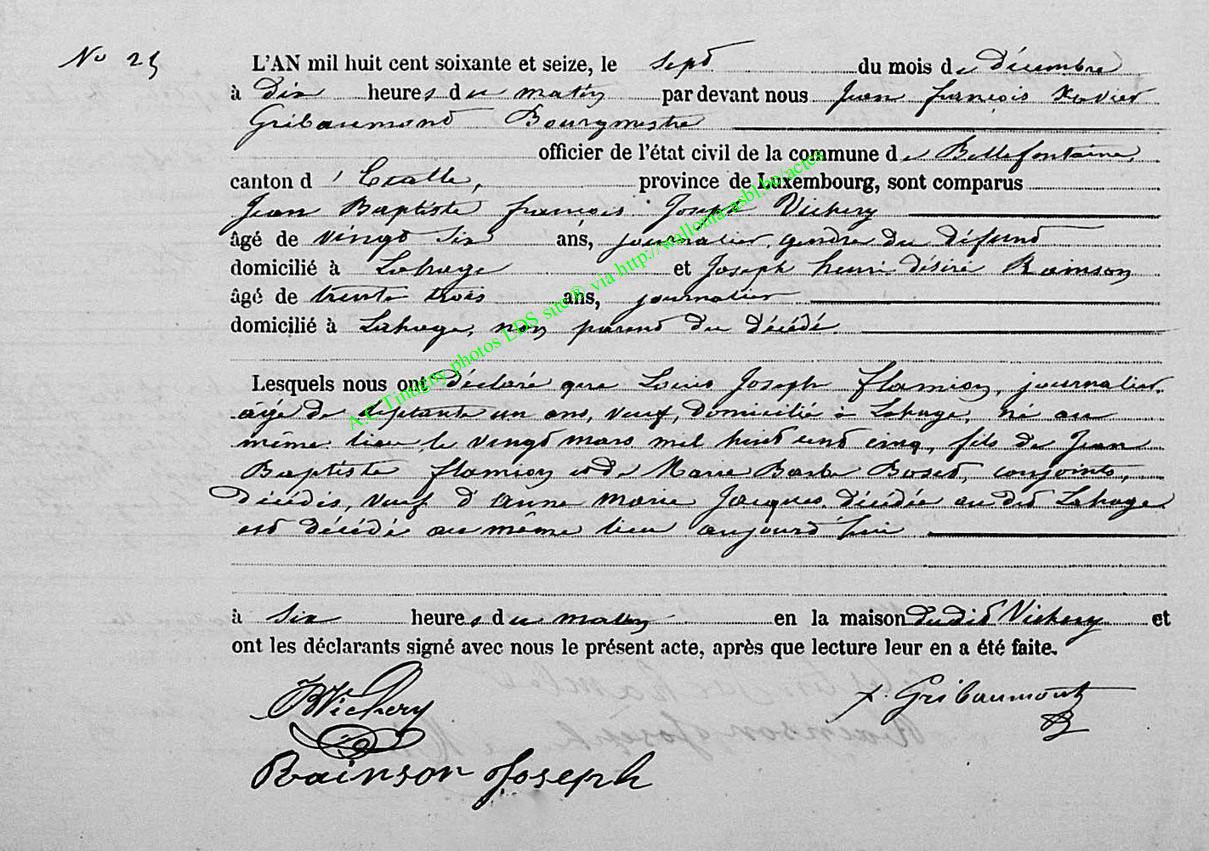 No 25
L'AN mil huit cent soixante et seize, le sept du mois de décembre
à dix heures du matin par devant nous Jean François Xavier
Gribaumont Bourgmestre
officier de l'état civil de la commune de Bellefontaine,
canton d'Etalle, province de Luxembourg, sont comparus
Jean Baptiste François Joseph Vichery
âgé de vingt six ans, journalier, gendre du défunt
domicilié à Lahage et Joseph henri désiré Rainson
âgé de trente trois ans, journalier
domicilié à Lahage, non parent du décédé.
Lesquels nous ont déclaré que Louis Joseph Flamion, journalier,
âgé de septante un ans, veuf, domicilié à Lahage, né au
même lieu le vingt mars mil huit cent cinq, fils de Jean
Baptiste Flamion et de Marie Barbe Boset, conjoints,
décédés, veuf d'Anne Marie Jacques, décédée au dit Lahage
est décédé au même lieu aujourd'hui
à six heures du matin en la maison dudit Vichery et
ont les déclarants signé avec nous le présent acte, après que lecture leur en a été faite.
A.C Tintigny photos LDS site® via http://wallonia-asbl.be/actes
JBVichery
x. Gribaumont
Rainson Joseph